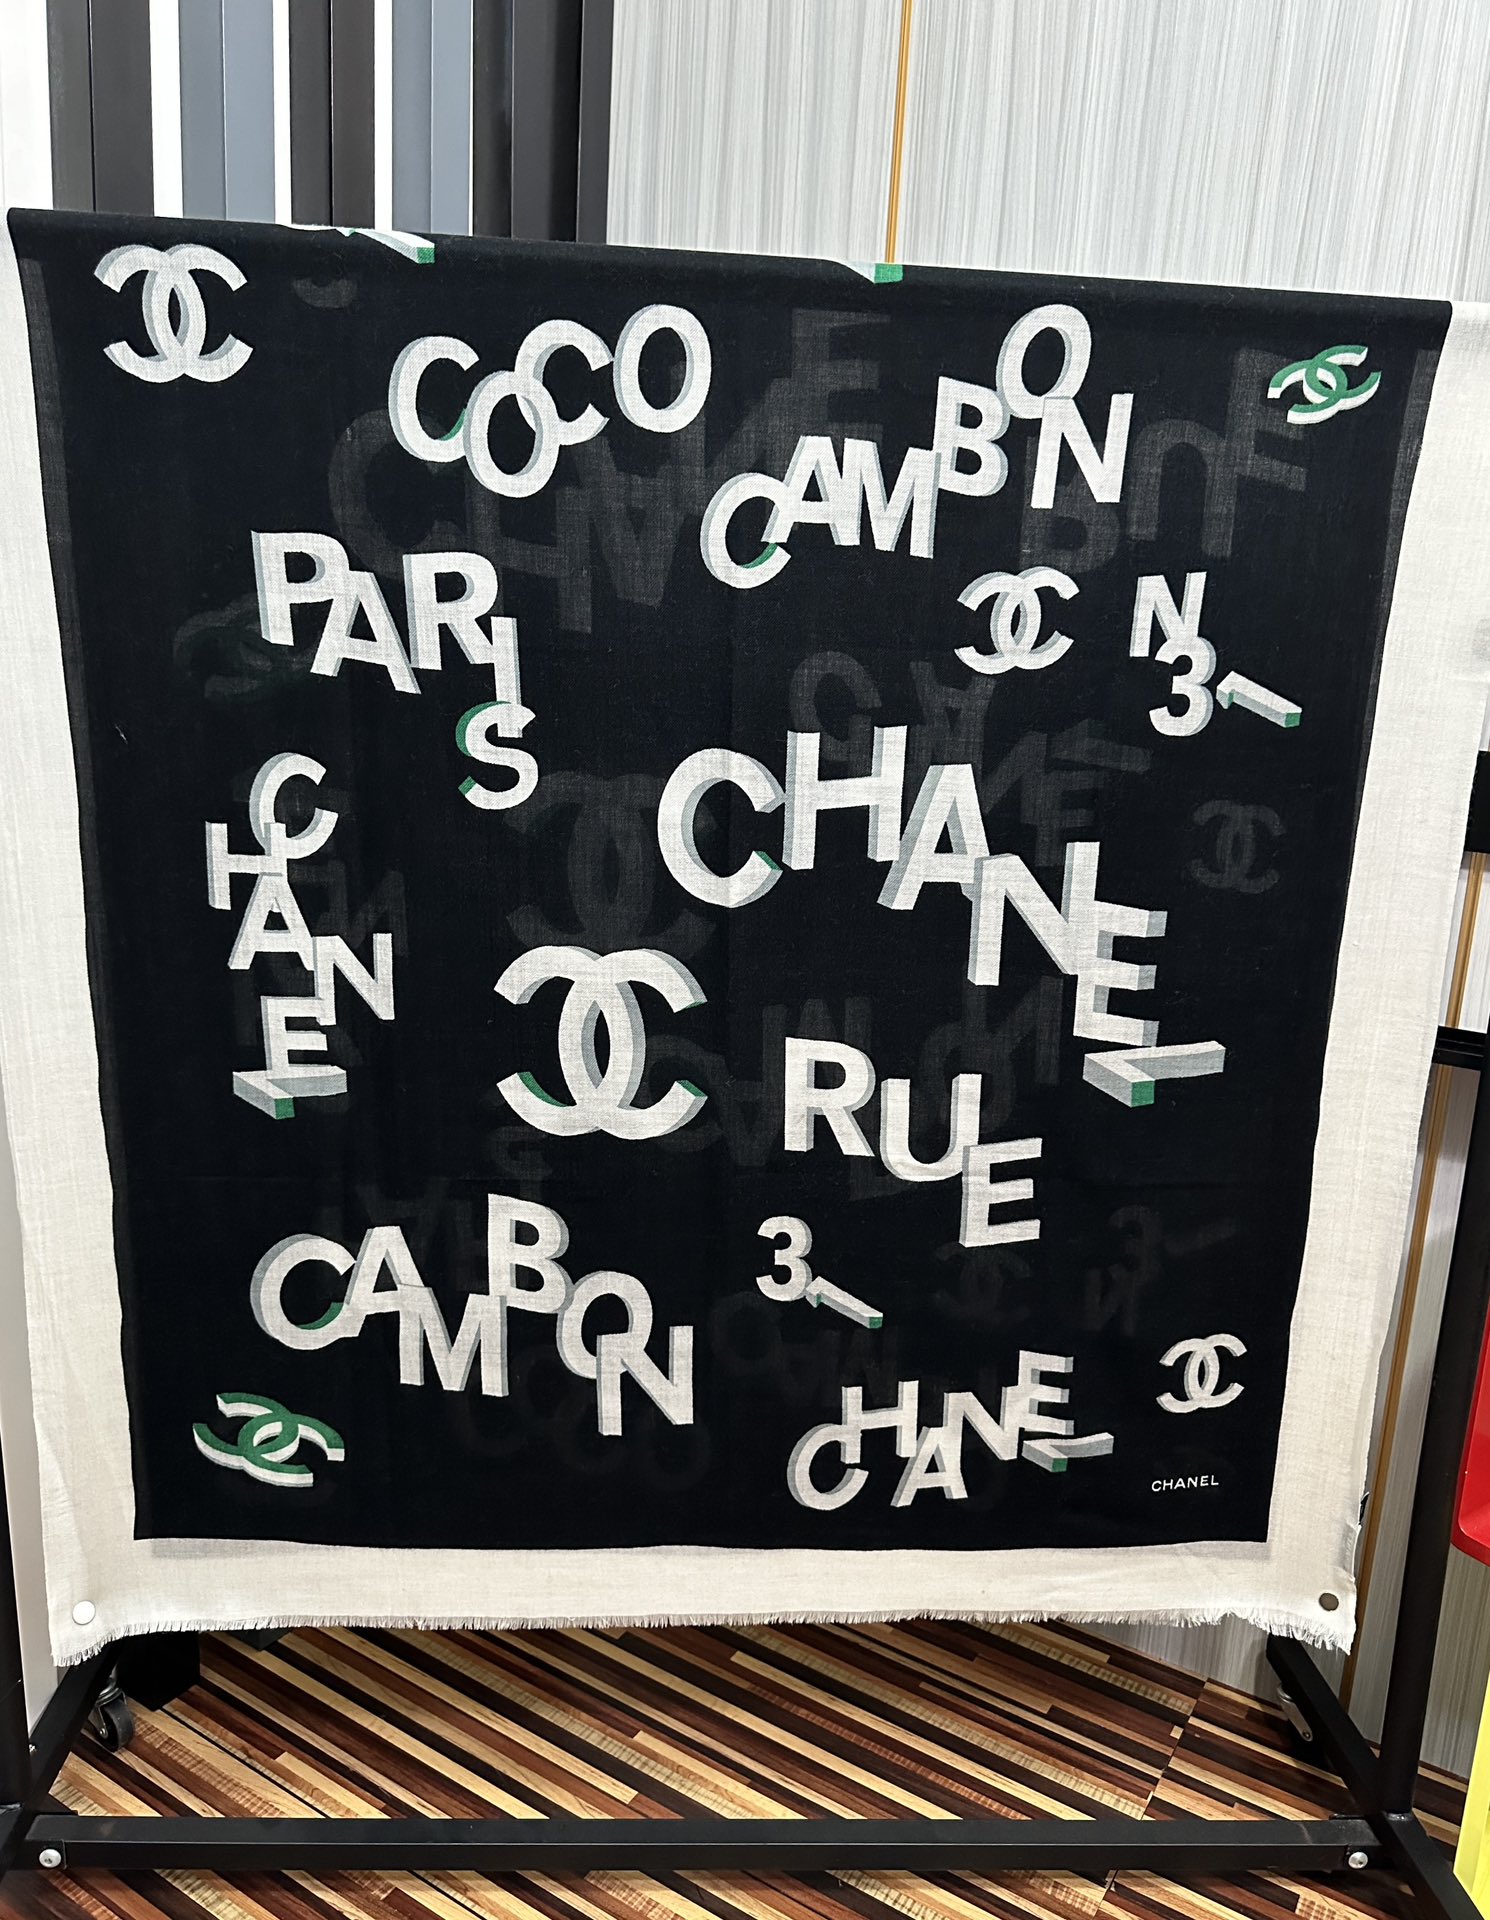 COCO
CAMBON
PARIS
N
31
CHANEL
CHANEL
RUE
CAMBON
31
CHANEL
CHANEL